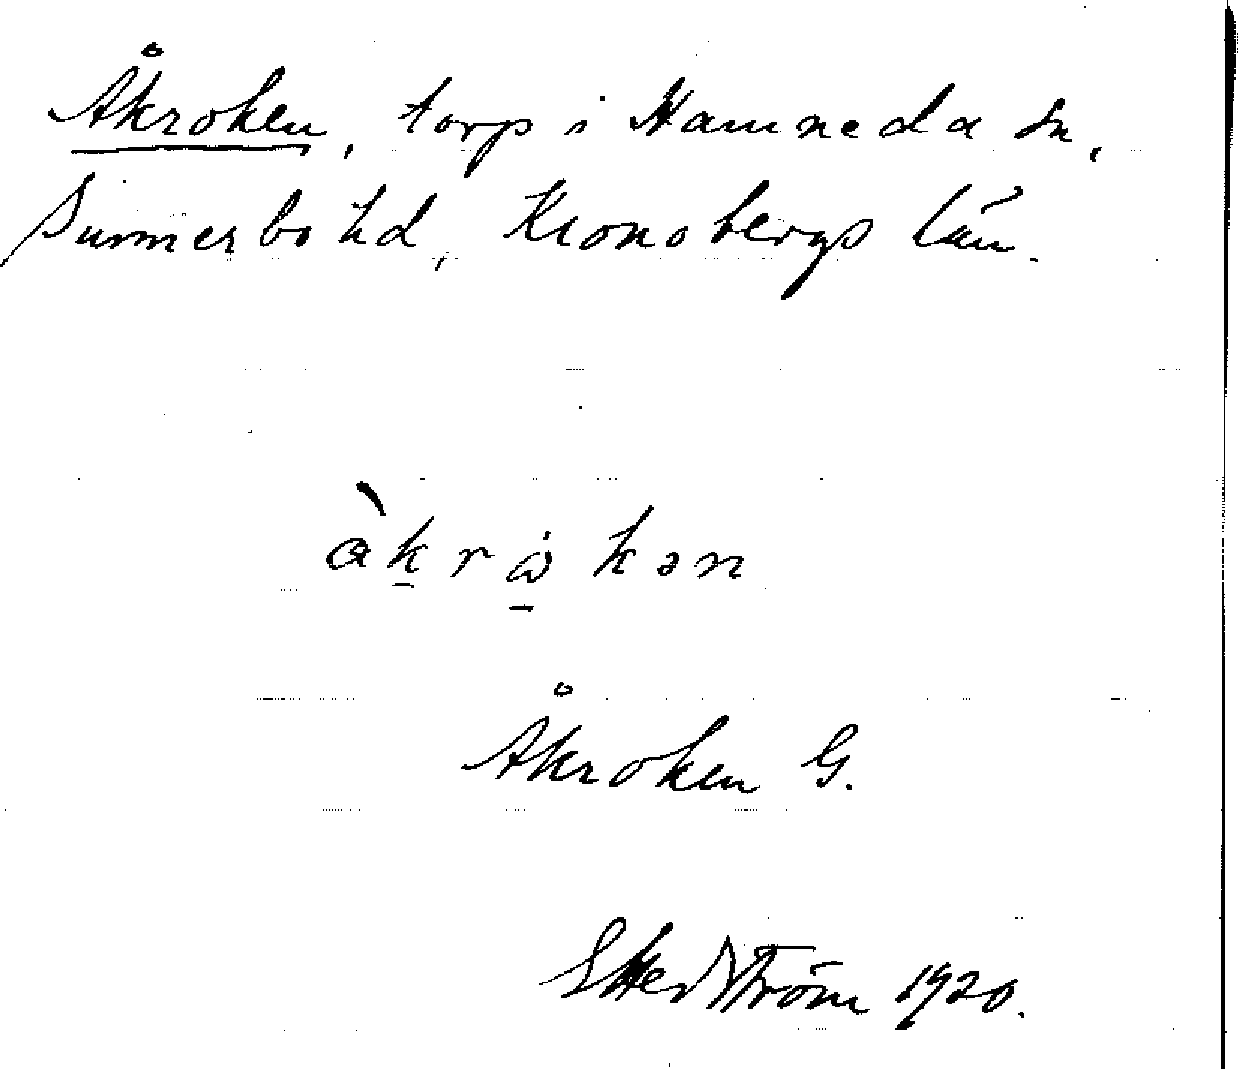 Åkroken, torp i Hamneda sn,
Sunnerbo hd, Kronobergs län.
àk̠rω̠̇kən
Åkroken G.
S Hedström 1920.